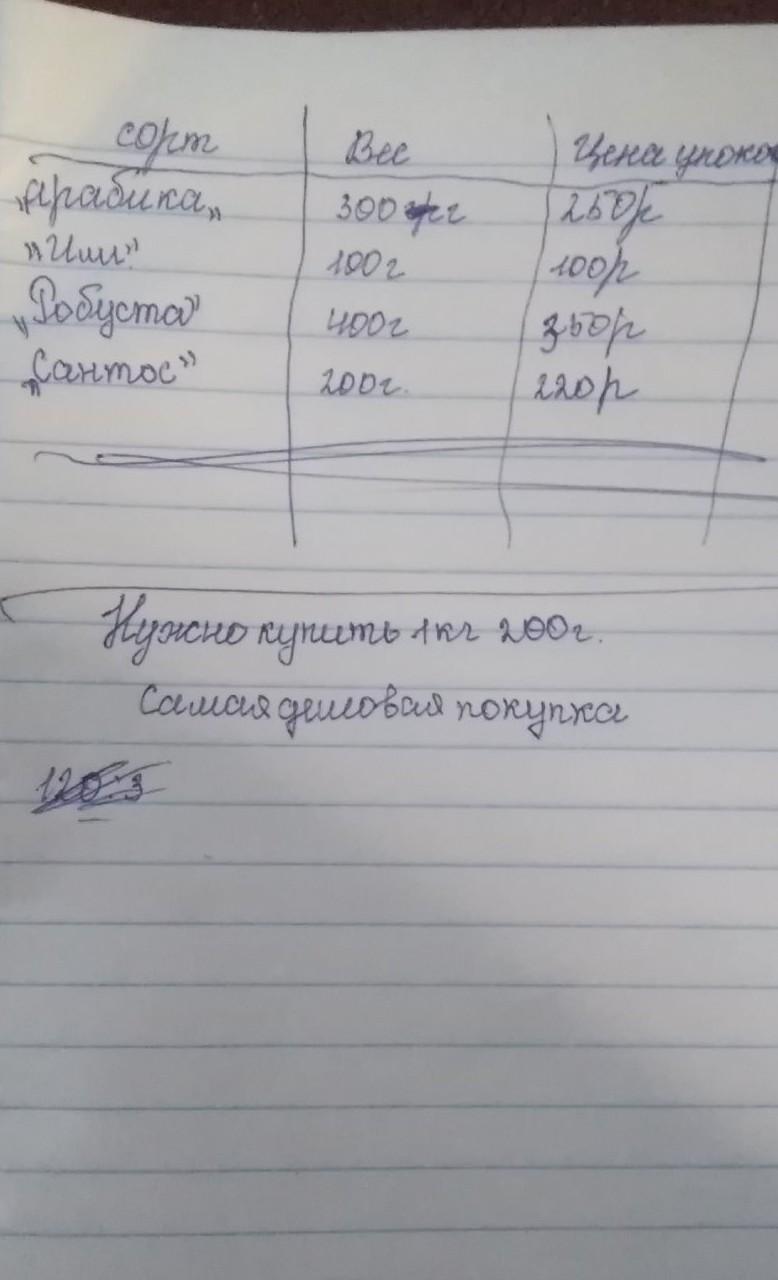 сорт Вес Цена упоко
„Арабика„ 300 г 250р
"Или" 100г 100р
„Робуста" 400г 350р
„Сантос" 200г. 220р
Нужно купить 1кг 200г.
Самая дешовая покупка
120:3